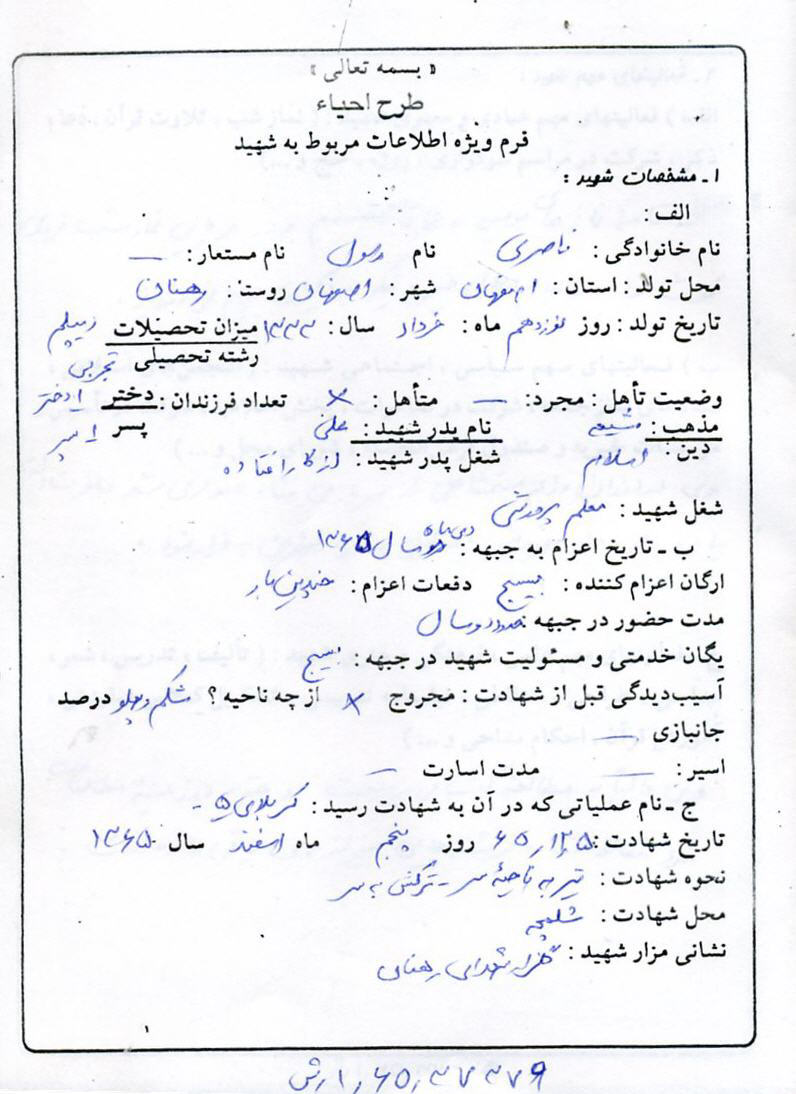 « بسمه تعالی »
طرح احیاء
فرم ویژه اطلاعات مربوط به شهید
۱ـ مشخصات شهید :
الف :
نام خانوادگی : ناصری نام رسول نام مستعار : —
محل تولد : استان : اصفهان شهر : اصفهان روستا : رهنان
تاریخ تولد : روز نوزدهم ماه : خرداد سال : ۱۳۳۳ میزان تحصیلات دیپلم
رشته تحصیلی تجربی
وضعیت تأهل : مجرد : — متأهل : × تعداد فرزندان : دختر ۱ دختر
مذهب : شیعه نام پدر شهید : علی پسر ۱ پسر
دین : اسلام شغل پدر شهید : از کار افتاده
شغل شهید : معلم پرورشی
ب ـ تاریخ اعزام به جبهه : دی ماه سال ۱۳۶۵
ارگان اعزام کننده : بسیج دفعات اعزام : چندین بار
مدت حضور در جبهه : حدود دو سال
یگان خدمتی و مسئولیت شهید در جبهه : بسیج
آسیب‌دیدگی قبل از شهادت : مجروح × از چه ناحیه ؟ شکم و پهلو درصد
جانبازی —
اسیر : — مدت اسارت —
ج ـ نام عملیاتی که در آن به شهادت رسید : کربلای ۵ -
تاریخ شهادت : ۶۵/۱۲/۵ روز پنجم ماه اسفند سال ۱۳۶۵
نحوه شهادت : تیر به ناحیهٔ سر - ترکش به سر
محل شهادت : شلمچه
نشانی مزار شهید : گلزار شهدای رهنان
۱